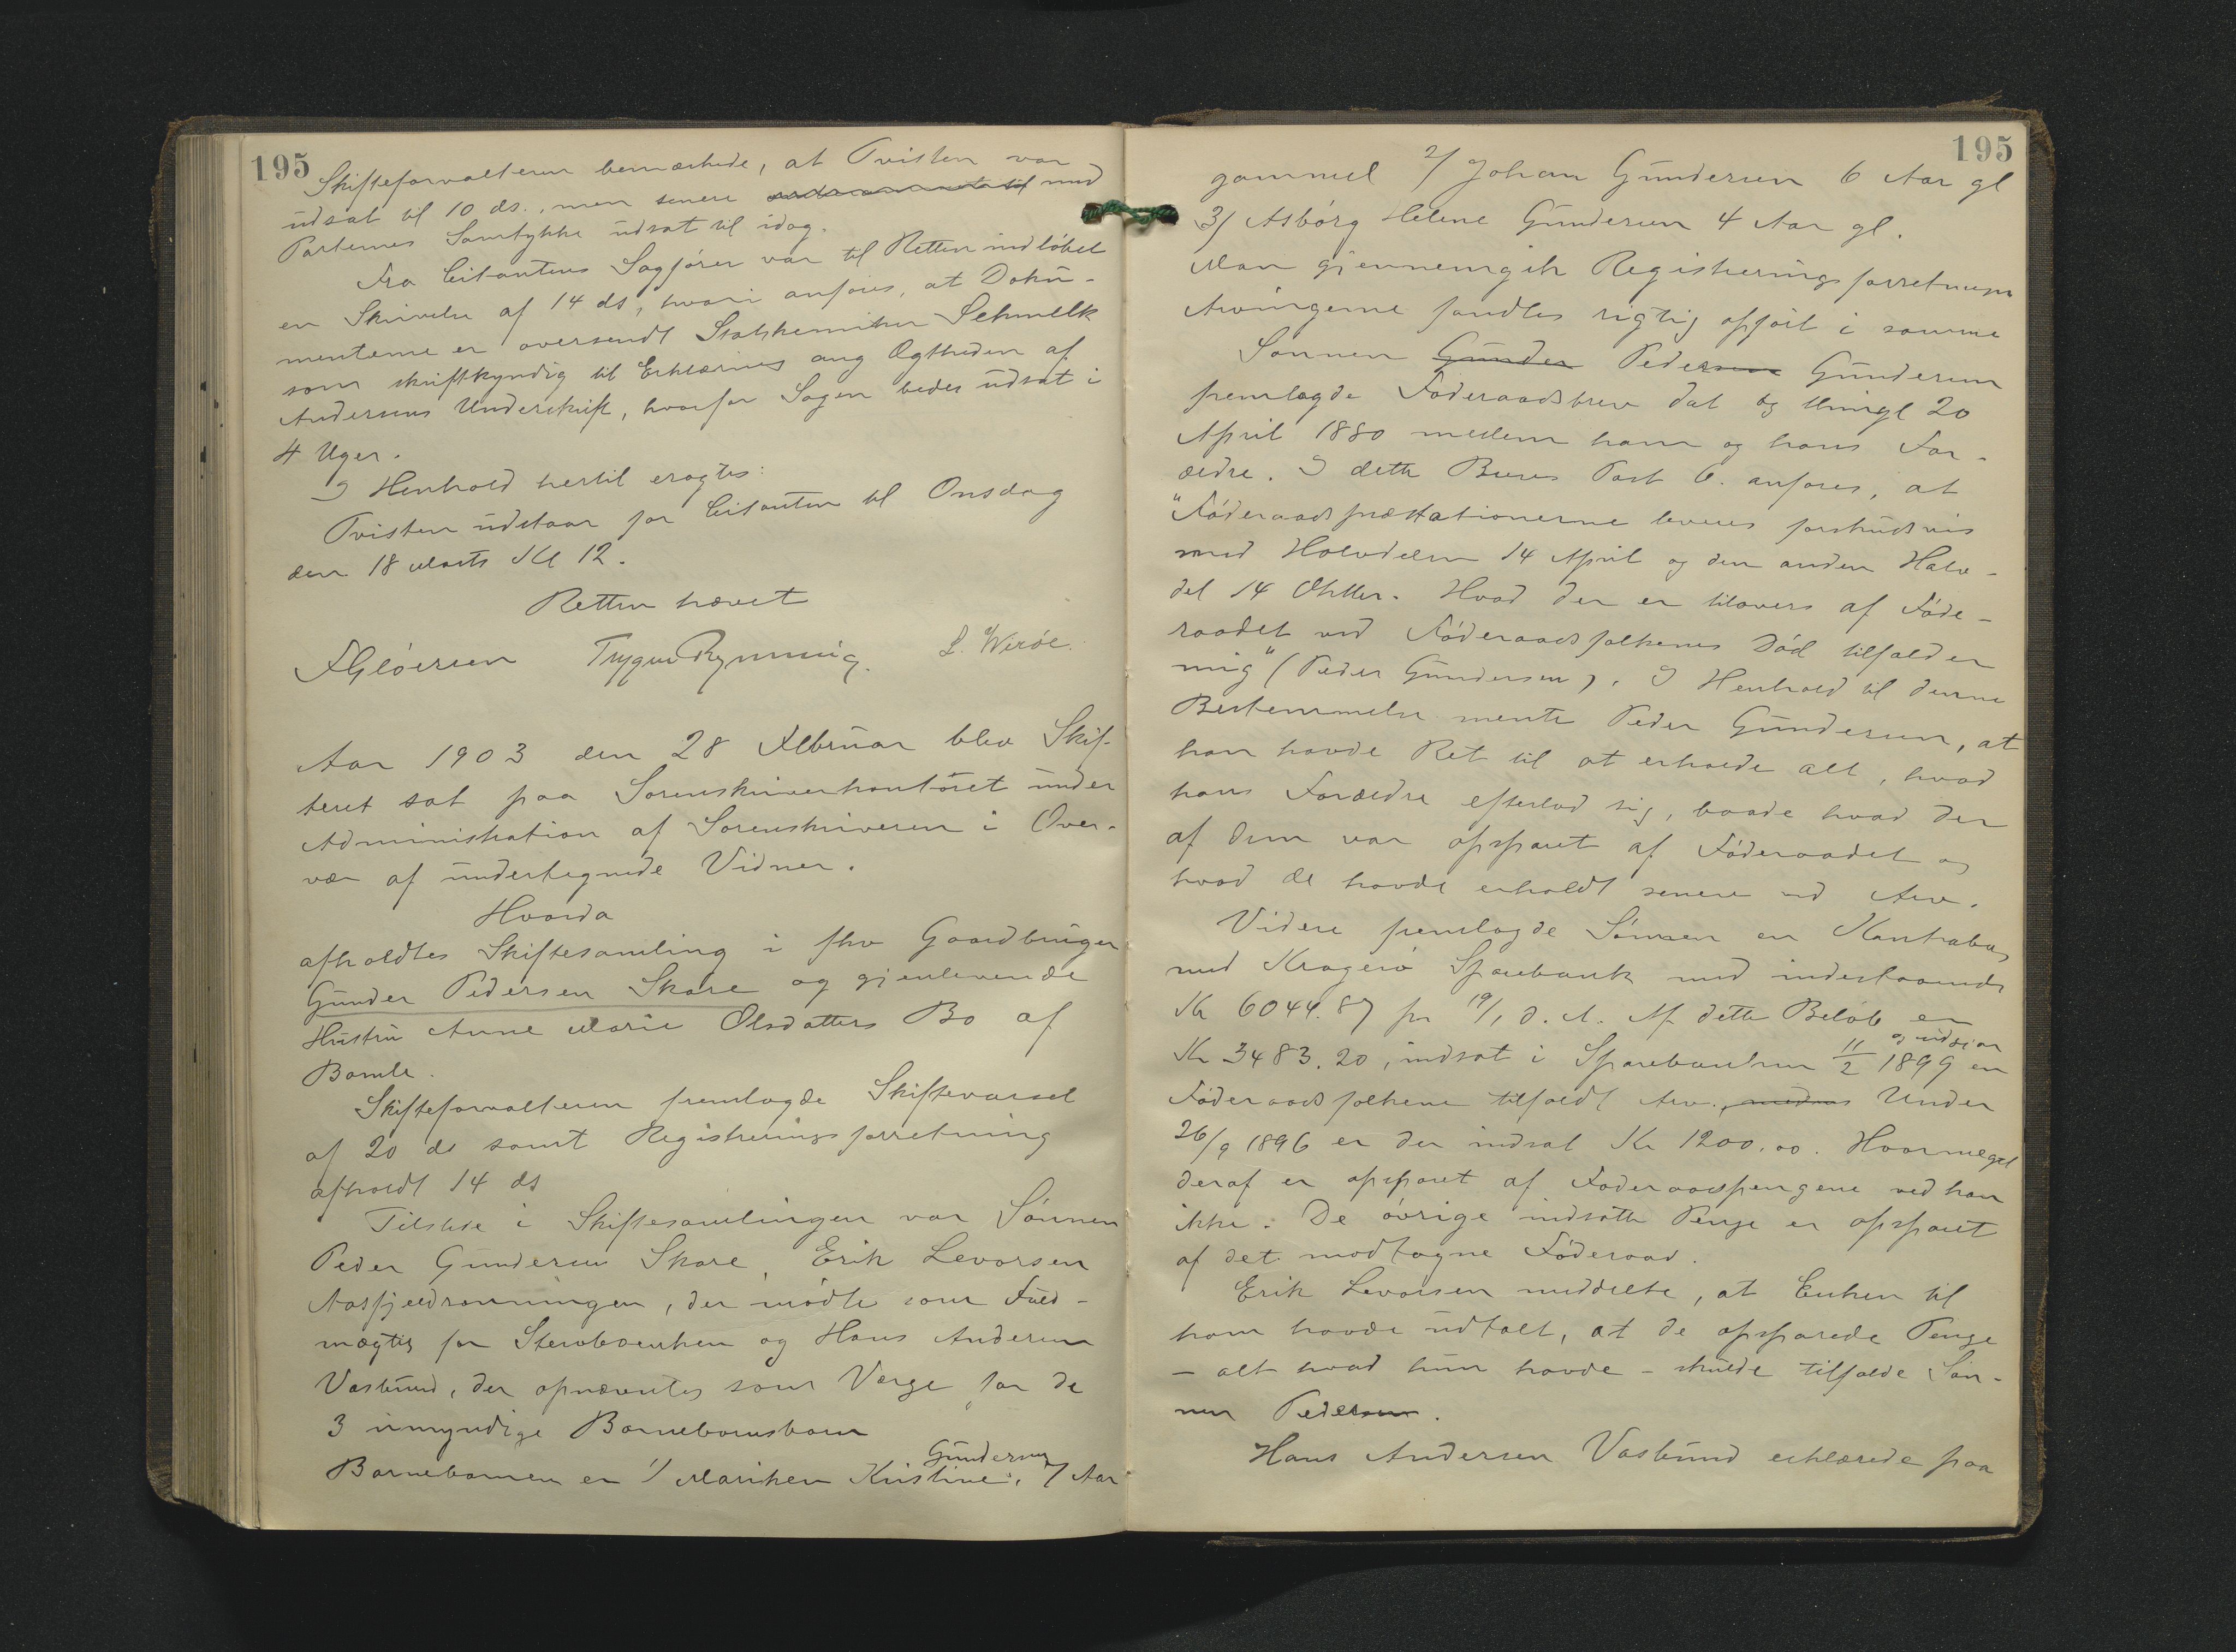 195
Skifteforvalteren bemærkede, at Tvisten var
udsat til 10 ds., men senere med
Parternes Samtykke udsat til idag.
Fra Citantens Sagfører var til Retten indløbet
en Skrivelse af 14 ds, hvori anføres, at Doku-
menterne er oversendt Statskemiker Schmelk
som skriftkyndig til Erklæring ang Ægtheden af
Andersens Underskrift, hvorfor Sagen bedes udsat i
4 Uger.
I Henhold hertil eragtes:
Tvisten udstaar for Citanten til Onsdag
den 18 Marts Kl 12.
Retten hævet
FGløersen Trygve Rynning. L. Werøe.
Aar 1903 den 28 Februar blev Skif-
teret sat paa Sorenskriverkontoret under
Administration af Sorenskriveren i Over-
vær af undertegnede Vidner.
Hvorda
afholdtes Skiftesamling i fhv Gaardbruger
Gunder Pedersen Skare og gjenlevende
Hustru Anne Marie Olsdatters Bo af
Bamle.
Skifteforvalteren fremlagde Skiftevarsel
af 20 ds samt Registreringsforretning
afholdt 14 ds
Tilstede i Skiftesamlingen var Sønnen
Peder Gundersen Skare, Erik Levorsen
Aasfjeldrønningen, der mødte som Fuld-
mægtig for Stervboenken og Hans Andersen
Vasbund, der opnævntes som Verge for de
3 umyndige Barnebarnsbarn
Gundersen
Barnebarnen er 1/ Mariken Kristine, 7 Aar
195
gammel 2/ Johan Gundersen 6 Aar gl
3/ Asbørg Helene Gundersen 4 Aar gl.
Man gjennemgik Registreringsforretningen
Arvingerne fandtes rigtig opført i samme
Sønnen Gunder Pedersen Gundersen
fremlagde Føderaadsbrev dat og thingl 20
April 1880 mellem ham og hans For-
ældre. I dette Brevs Post 6. anføres, at
"Føderaadspræstationerne leveres forskudsvis
med Halvdelen 14 April og den anden Halv-
del 14 Oktbr. Hvad der er tilovers af Føde-
raadet ved Føderaadsfolkenes Død tilfalder
mig" (Peder Gundersen). I Henhold til denne
Bestemmelse mente Peder Gundersen, at
han havde Ret til at erholde alt, hvad
hans Forældre efterlod sig, baade hvad der
af dem var opsparet af Føderaadet og
hvad de havde erholdt senere ved Arv.
Videre fremlagde Sønnen en Kontrabog
med Kragerø Sparebank med indestaaende
Kr 6044.87 pr 19/1 d. A. Af dette Beløb er
og udgjør
Kr 3483.20, indsat i Sparebanken 11/2 1899 en
Føderaadsfolkene tilfaldt Arv., medens Under
26/9 1896 er der indsat Kr 1200.00. Hvormeget
deraf er opsparet af Føderaadspengene ved han
ikke. De øvrige indsatte Penge er opsparet
af det modtagne Føderaad.
Erik Levorsen meddelte, at Enken til
ham havde udtalt, at de opsparede Penge
– alt hvad hun havde – skulde tilfalde Søn-
nen Pedersen.
Hans Andersen Vasbund erklærede paa